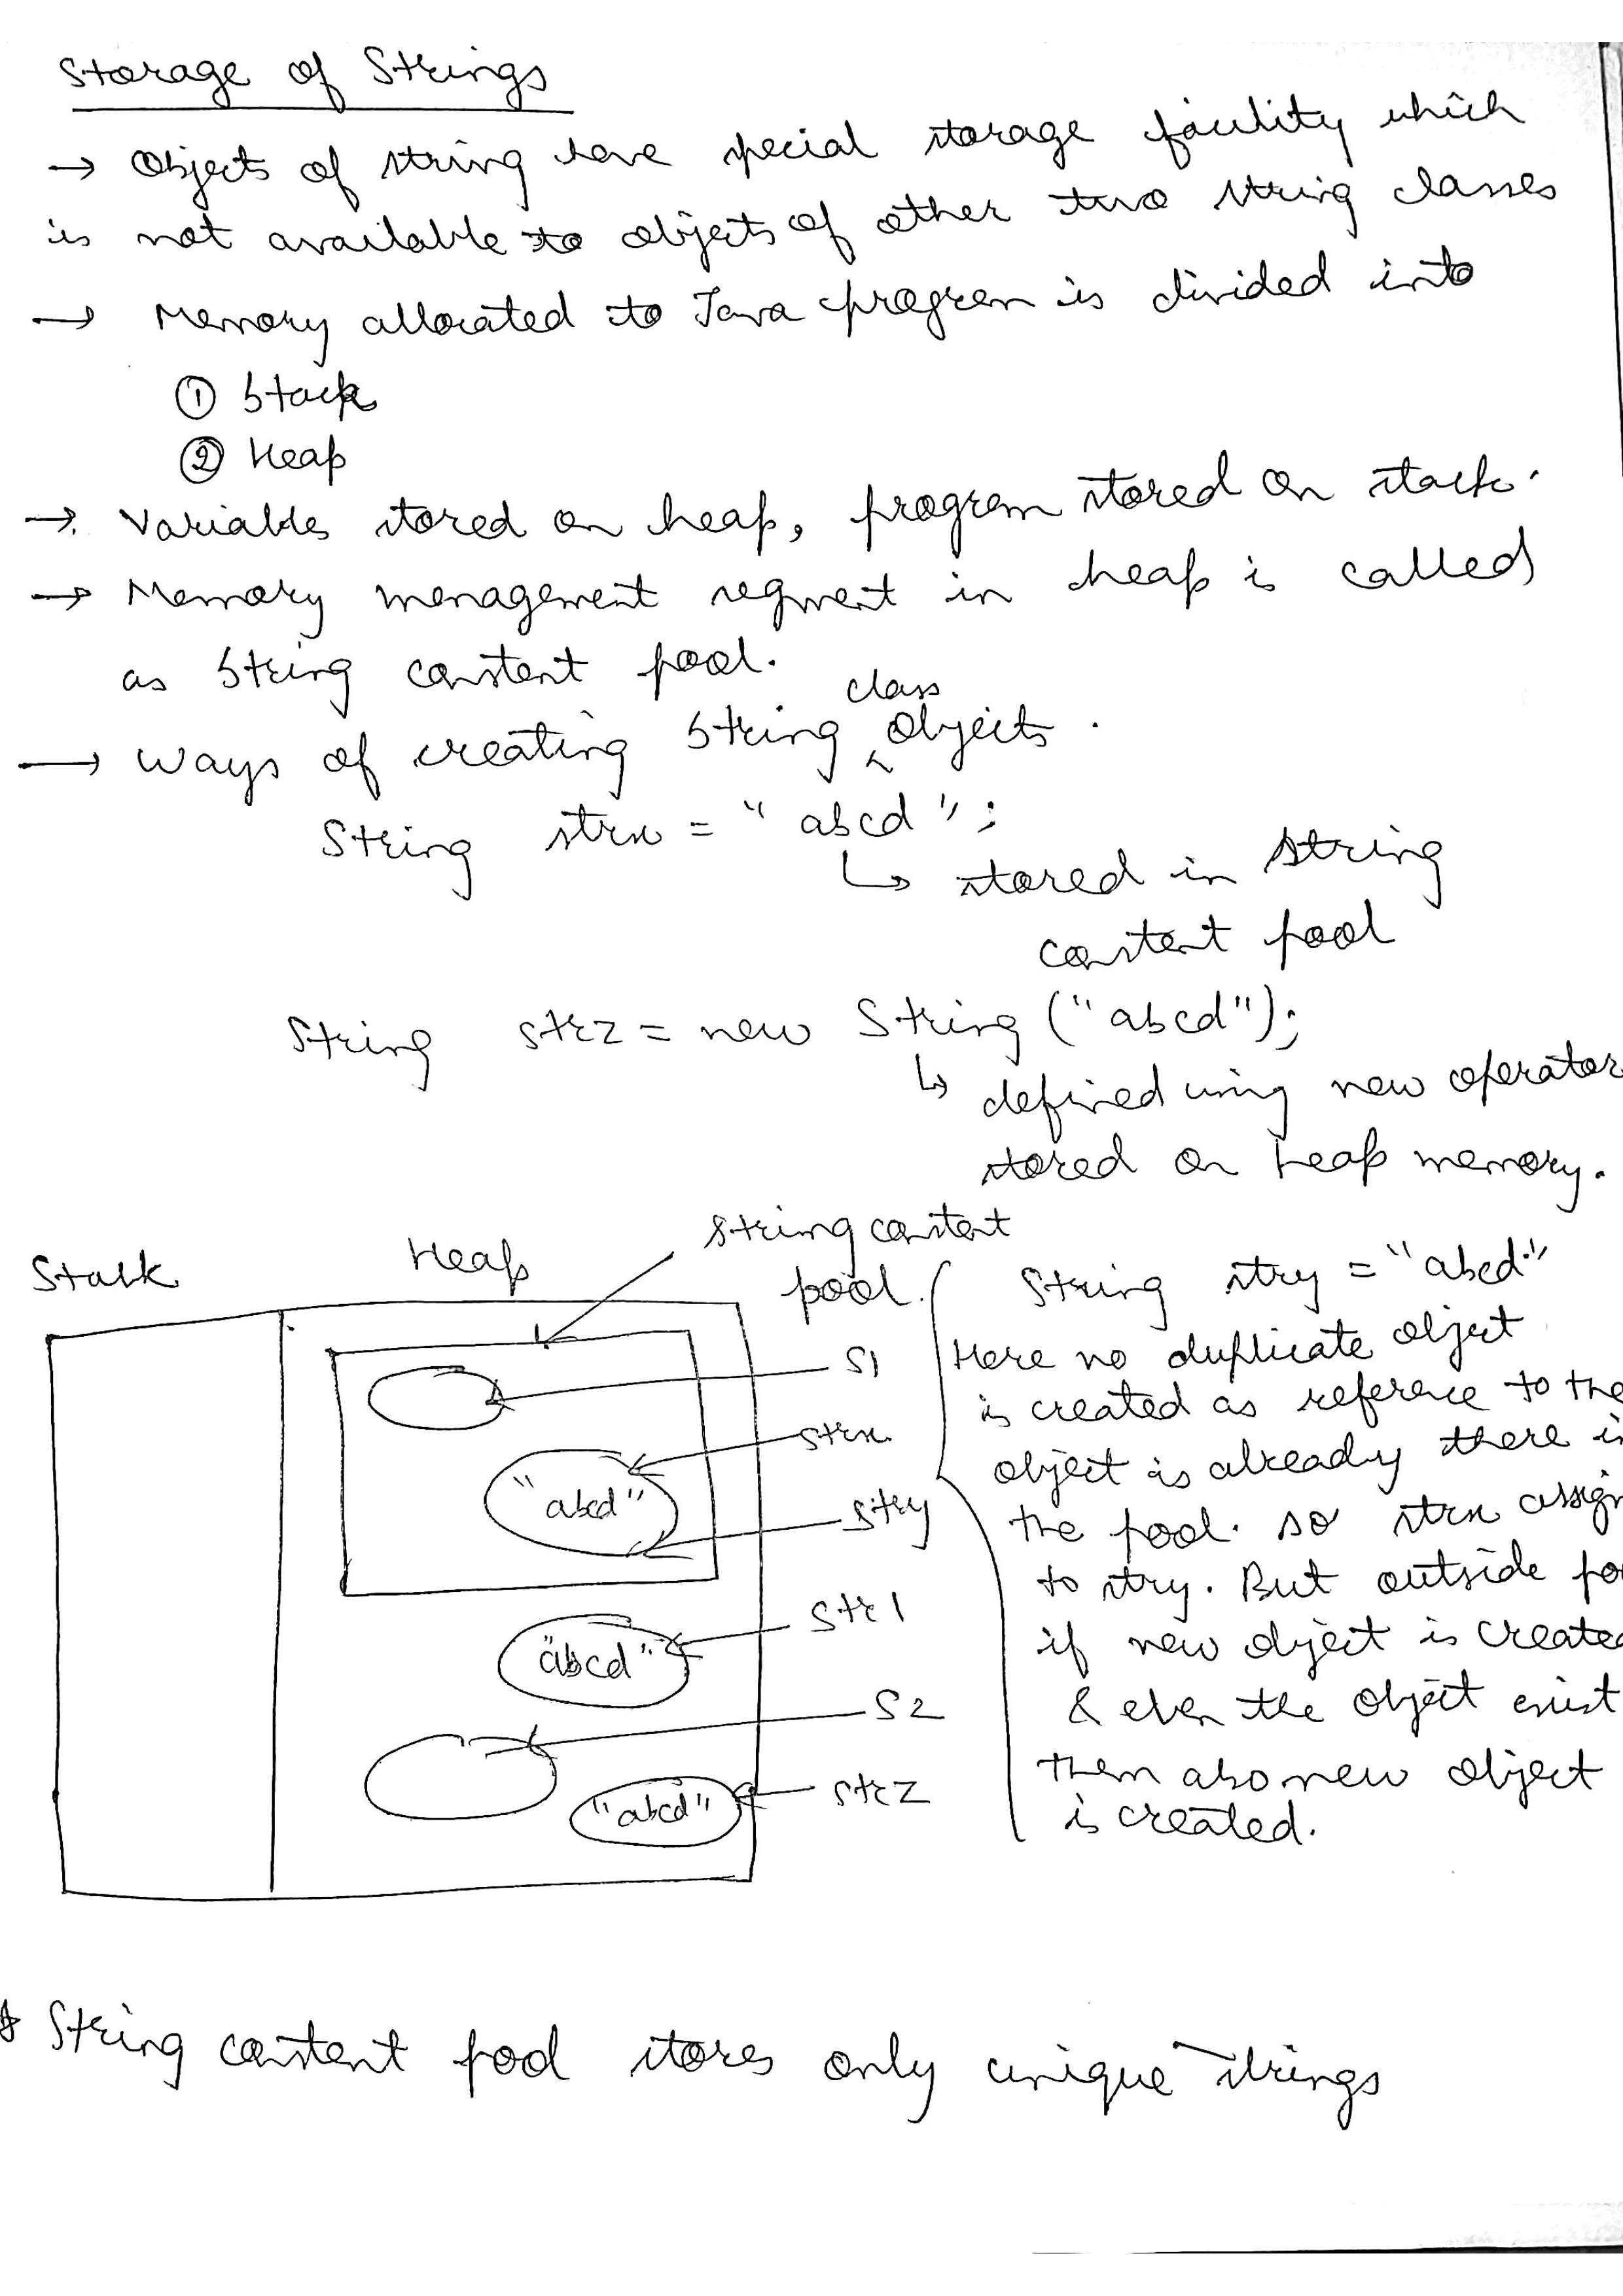 Storage of Strings
→ Objects of string have special storage facility which
is not available to objects of other two string classes
→ Memory allocated to Java program is divided into
① Stack
② Heap
→ Variables stored on heap, program stored on stack.
→ Memory management segment in heap is called
as String constant pool.
class
→ ways of creating String ^ objects.
String strx = "abcd";
↳ stored in string
constant pool
String strz = new String ("abcd");
↳ defined using new operator
stored on heap memory.
Stack
Heap
string constant
pool.
S1
strx
"abcd"
stry
str1
"abcd"
S2
strz
"abcd"
String stry = "abcd"
Here no duplicate object
is created as reference to the
object is already there i
the pool. so strx assign
to stry. But outside po
if new object is create
& even the object exist
then also new object
is created.
* String constant pool stores only unique strings